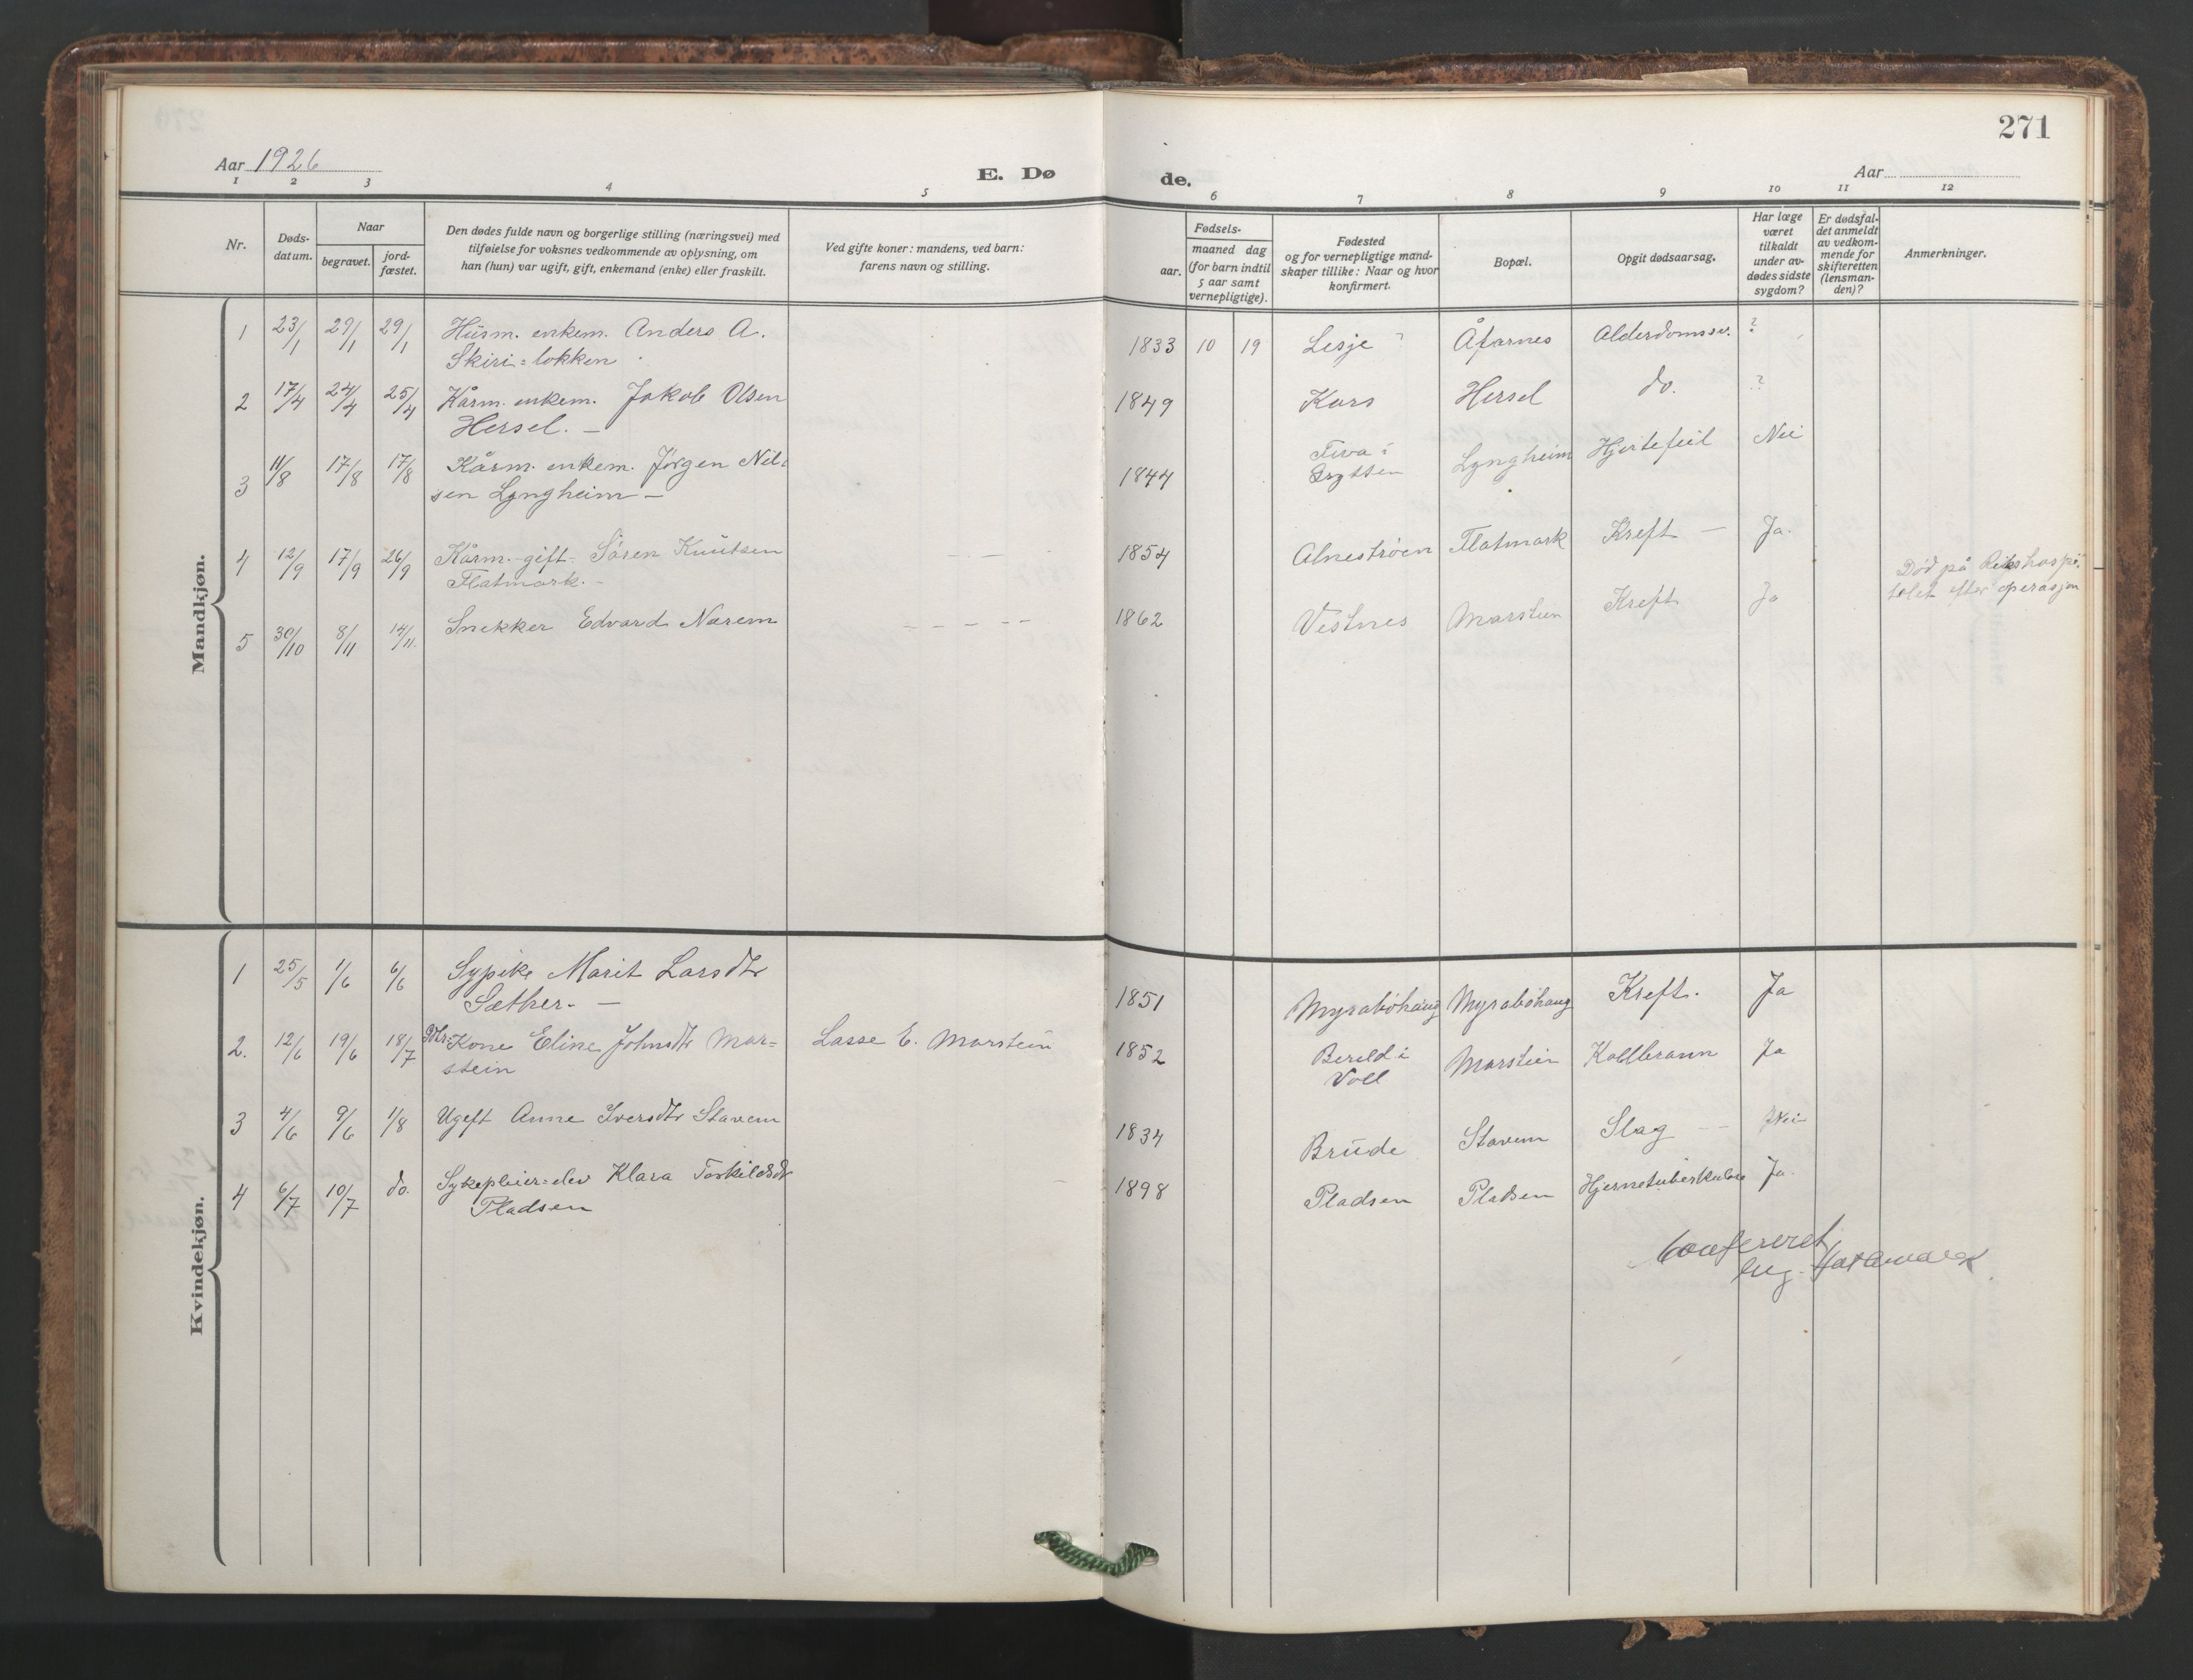 271
Aar 1926
E. Dø
de.
Aar
1 2 3 4 5 6 7 8 9 10 11 12
Nr.
Døds-
datum.
Naar
begravet.
jord-
fæstet.
Den dødes fulde navn og borgerlige stilling (næringsvei) med
tilføielse for voksnes vedkommende av oplysning, om
han (hun) var ugift, gift, enkemand (enke) eller fraskilt.
Ved gifte koner: mandens, ved barn:
farens navn og stilling.
Fødsels-
aar.
maaned dag
(for barn indtil
5 aar samt
vernepligtige).
Fødested
og for vernepligtige mand-
skaper tillike: Naar og hvor
konfirmert.
Bopæl.
Opgit dødsaarsag.
Har læge
været
tilkaldt
under av-
dødes sidste
sygdom?
Er dødsfal-
det anmeldt
av vedkom-
mende for
skifteretten
(lensman-
den)?
Anmerkninger.
Mandkjøn.
1 23/1 29/1 29/1 Husm. enkem. Anders A. 1833 10 19 Lesje ? Åfarnes Alderdomssv. ?
Skiri=løkken
2 17/4 24/4 25/4 Kårm. enkem. Jakob Olsen 1849 Kors Hersel do. ?
Hersel. –
3 11/8 17/8 17/8 Kårm. enkem. Jørgen Nil= 1844 Tiva i Lyngheim Hjertefeil Nei
sen Lyngheim – Grytten
4 12/9 17/9 26/9 Kårm. gift – Søren Knutsen – – 1854 Alnestrøen Flatmark Kreft – Ja.
Flatmark. –
5 30/10 8/11 14/11. Snekker Edvard Nærem – – – – – 1862 Vestnes Marstein Kreft Ja Død på Rikshospi=
talet efter operasjon
Kvindekjøn.
1 25/5 1/6 6/6 Sypike Marit Larsdtr 1851 Myrabøhaug Myrabøhaug Kreft. Ja
Sæther. –
2. 12/6 19/6 18/7 Kone Eline Johnsdtr Mar= Lasse E. Marstein 1852 Bereld i Marstein Koldbrann Ja
stein Voll
3 4/6 9/6 1/8 Ugift Anne Iversdtr Stavem 1834 Brude Stavem Slag – – Nei
4 6/7 10/7 do. Sykepleier=elev Klara Torkildsdtr – 1898 Pladsen Pladsen Hjernetuberkulose Ja.
Pladsen
Confereret